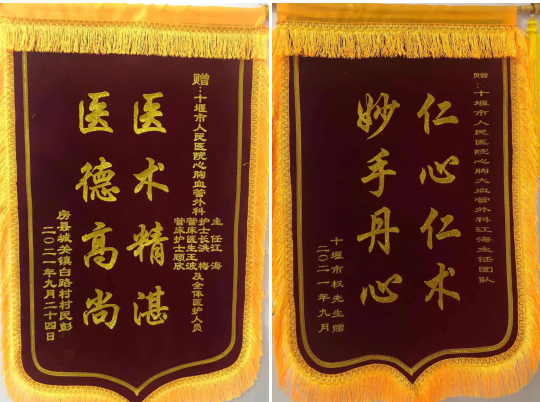 赠：十堰市人民医院心胸血管外科
主任江海
护士长洪梅
管床医生王
管床护士顾欣
及全体医护人员
医术精湛
医德高尚
房县城关镇白路村村民彭
二〇二一年九月二十四日
赠：十堰市人民医院心胸大血管外科江海主任团队
仁心仁术
妙手丹心
十堰市权先生赠
二〇二一年九月